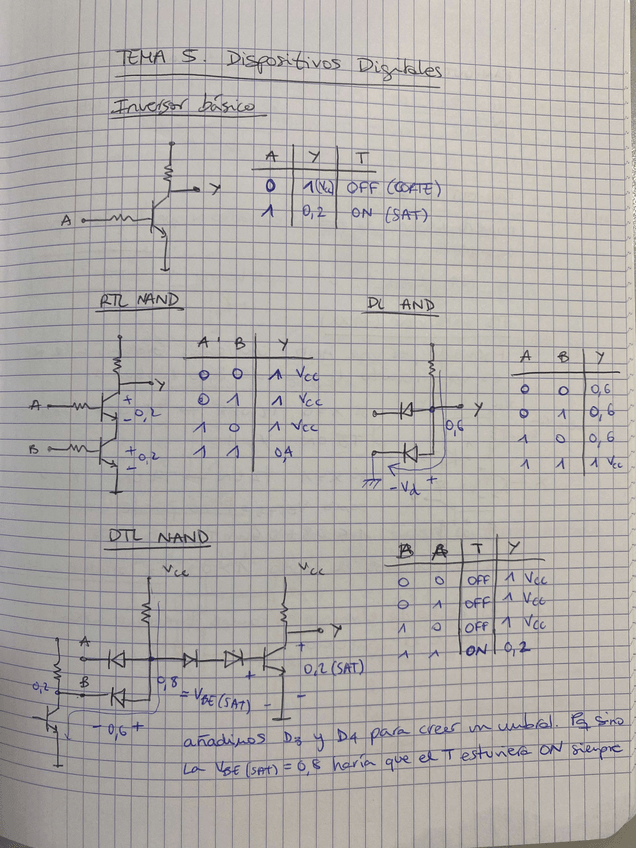 TEMA 5. Dispositivos Digitales
Inversor básico
A Y T
0 1(Vcc) OFF (CORTE)
1 0,2 ON (SAT)
A
Y
RTL NAND
A B Y
0 0 1 Vcc
0 1 1 Vcc
1 0 1 Vcc
1 1 0,4
Y
A
+
- 0,2
B
+ 0,2
-
DL AND
Y
0,6
- Vd +
A B Y
0 0 0,6
0 1 0,6
1 0 0,6
1 1 1 Vcc
DTL NAND
Vcc Vcc
A
B
0,2
- 0,6 +
0,8
= VBE (SAT)
+
-
Y
+
0,2 (SAT)
-
B A T Y
0 0 OFF 1 Vcc
0 1 OFF 1 Vcc
1 0 OFF 1 Vcc
1 1 ON 0,2
añadimos D3 y D4 para creer un umbral. Pq sino
La VBE (SAT) = 0,8 haría que el T estuviera ON siempre